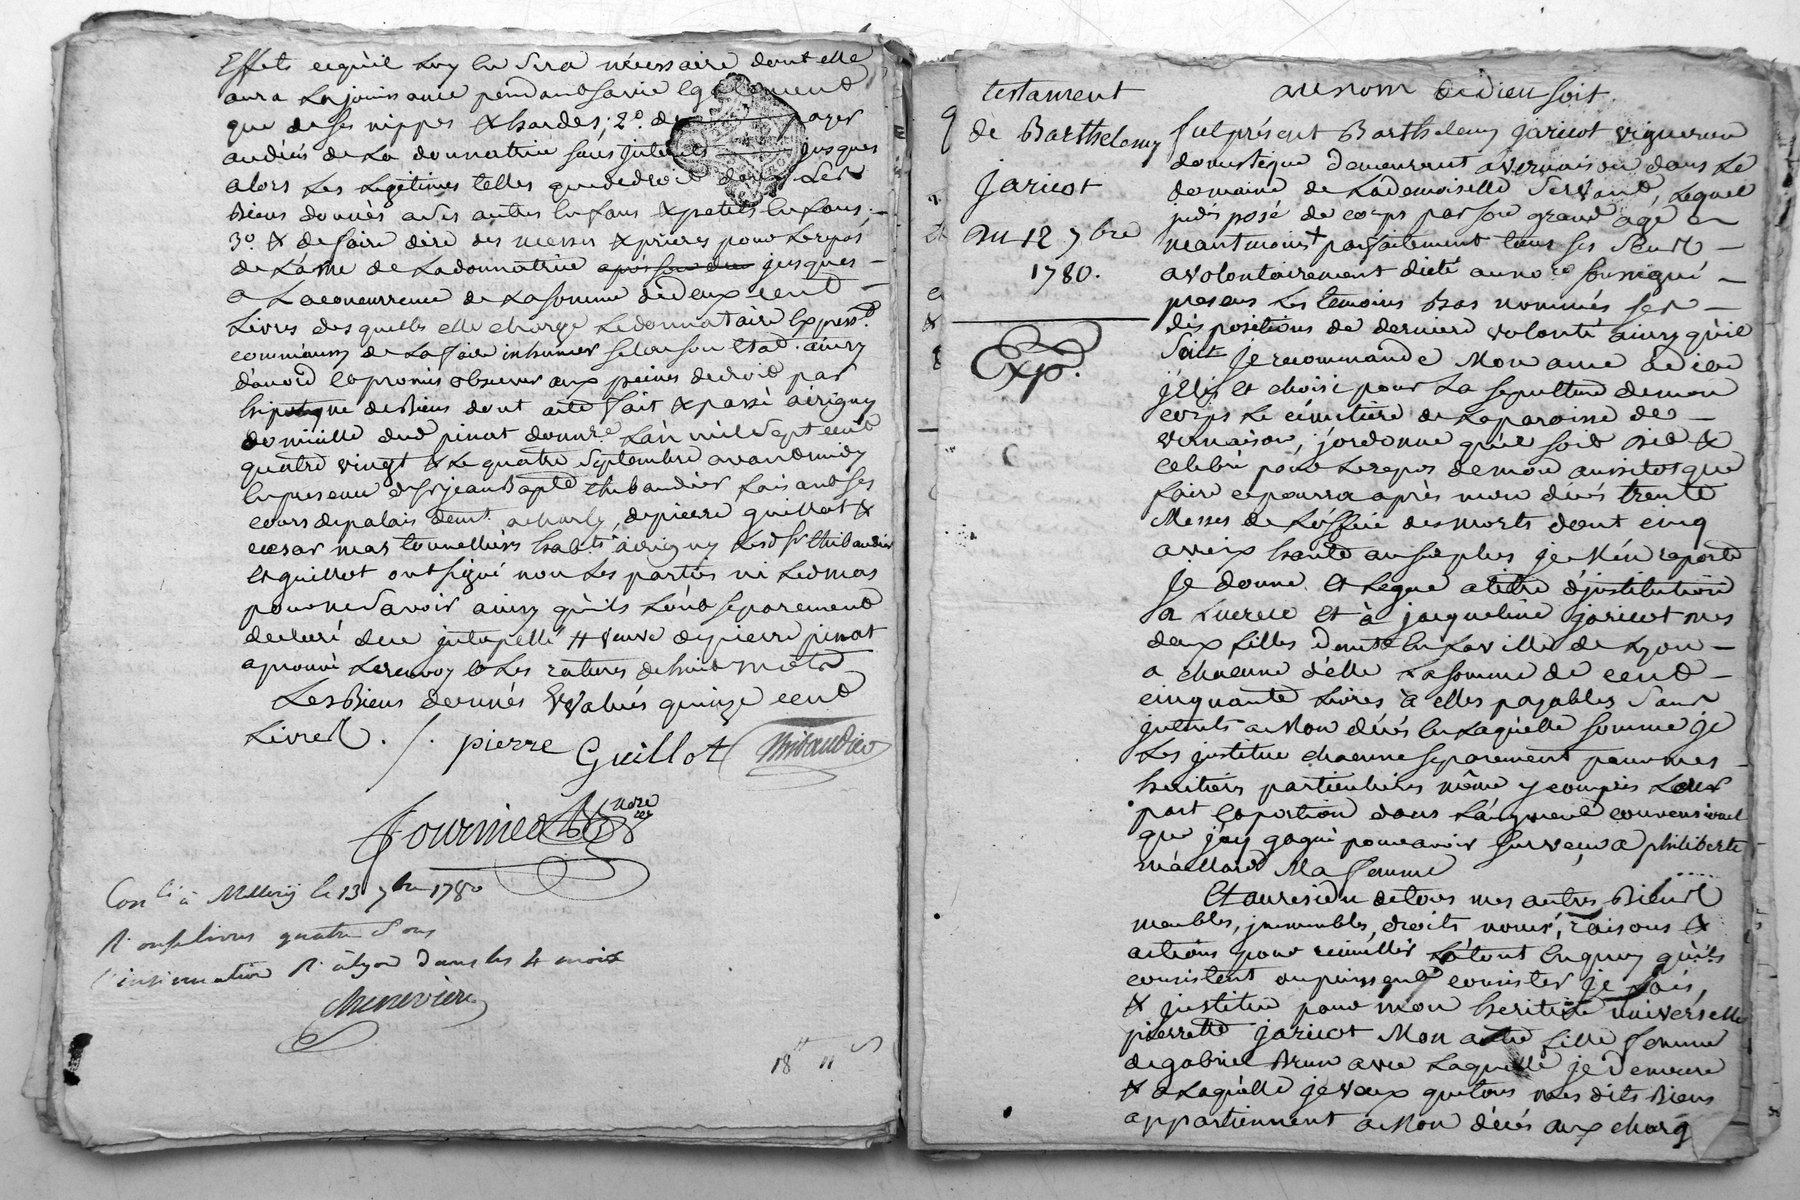 Effets ce qu'il luy en sera nécessaire dont elle
aura la jouissance pendant sa vie également
que de ses nippes & hardes; 2º. de payer
au décés de la donnatrice sans interet jusques
alors les légitimes telles que de droit dans les
Biens donnés a ses autres enfans & petits enfans; —
3º & de faire dire des messes & prières pour le repos
de L'ame de Ladonnatrice après son dec jusques —
a La concurrence de La somme de deux cent —
Livres desquelles elle charge Le donnataire Express.t
comme aussy de La faire inhumer selon son Etat. ainsy
d'accord Et promis observer aux peines de droit par
hipoteque de Biens dont acte fait & passé a irigny
domicille dud pinat donnre. L'an mil sept cent
quatre vingt & Le quatre septembre avant midy
En presence de Sr jean Bapte thibaudier faisant ses
cours de palais demt. a charly, de pierre guillot &
cesar mas tonnelliers habts. a irigny Lesd Sr thibaudier
Et guillot ont signé non Les parties ni Led mas
pour ne savoir ainsy qu'ils L'ont separement
declaré de ce interpellé # veuve de pierre pinat
aprouvé Le renvoy & Les ratures de huit mots
Les Biens donnés Evalués quinze cent
Livres ./.
pierre Guillot thibaudier
fournier Nore
Conlé à Millery le 13 7bre 1780
R onze livres quatre sous
l'insinuation R à lyon dans les 4 mois
Chenevière
18 tt 11 s
testament
de Barthelemy
jaricot
Du 12 7bre
1780.
Exp.
au nom de dieu soit
fut présent Barthelemy jaricot vigneron
domestique demeurant a vernaison dans Le
domaine de La demoiselle Servant, Lequel
indisposé de corps par son grand age
neantmoins parfaitement dans ses sens —
a volontairement dicté au nore soussigné —
presens Les temoins Bas nommés ses —
dispositions de derniere volonté ainsy qu'il
suit je recommande Mon ame a dieu
j'élis Et choisi pour La sepulture de mon
corps Le cimetiere de La paroisse de —
vernaison, j'ordonne qu'il soit dit &
celebré pour Le repos de mon ame sitos que
faire ce pourra après mon décés trente
Messes de L'office des morts dont cinq
a voix haute au surplus je M'en raporte
je donne Et Legue a titre d'institution
a Lucrece Et à jacqueline jaricot mes
deux filles demtes En La ville de Lyon —
a chacune d'elle La somme de cent —
cinquante Livres a elles payables sans
interets a Mon décés En Laquelle somme je
Les institue chacune separement pour mes
heritières particulières même y compris Leur
part Et portion dans L'augment conventionel
que j'ay gagné pour avoir survecu a philiberte
Ma femme
Et au residu de tous mes autres Biens
meubles, immeubles, droits, noms, raisons &
actions pour recueillir Le tout En quoy qu'ils
consistent ou puissent consister je fais,
& institue pour mon heritiere universelle
pierrette jaricot Mon autre fille femme
de gabriel Brun avec Laquelle je demeure
& a Laquelle je veux que tous Mes dits Biens
appartiennent a Mon décés aux charg